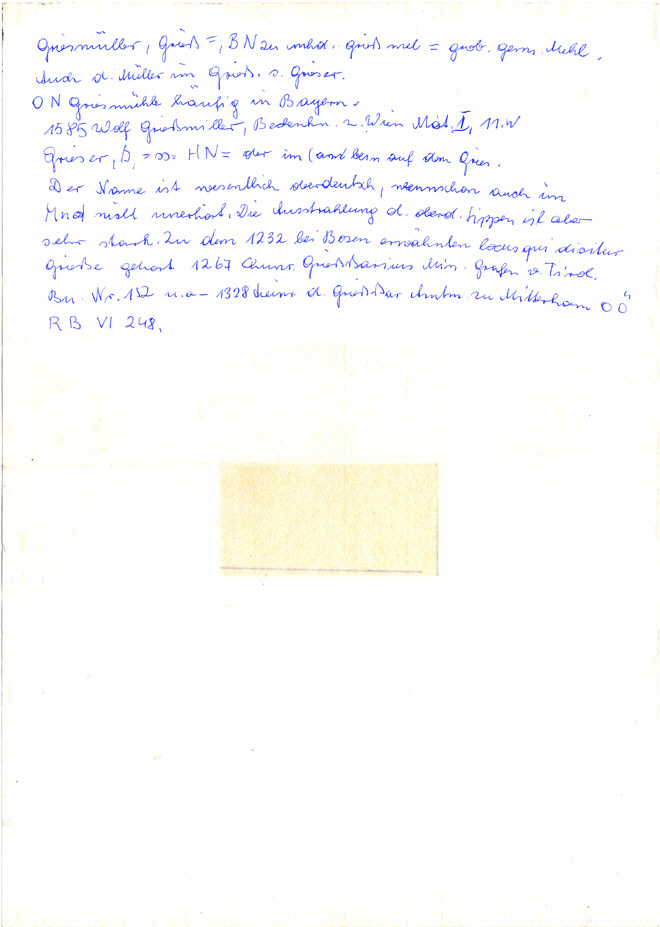 Griesmüller, Grieß=, BN zu mhd. grieß mel = grob. gem. Mehl.
Auch d. Müller im Grieß. s. Grieser.
ON Griesmühle häufig in Bayern.
1585 Wolf Grießmiller, z. Wien Mat. I, 11. W
Grieser, ß, = HN = der im (and bem auf dem Gries.
Der Name ist wesentlich oberdeutsch, wennschon auch im
Mnd nicht unerhört. Die Ausstrahlung d. oberd. Sippen ist aber
sehr stark. Zu dem 1232 bei Bosen erwähnten locus qui dicitur
Grieße gehört 1267 Chunr. Min. Grafen v. Tirol.
Bu. Nr. 152 u. a - 1328 Heinr. d. Grießßar Amtm. zu Mitterham OÖ
RB VI 248.